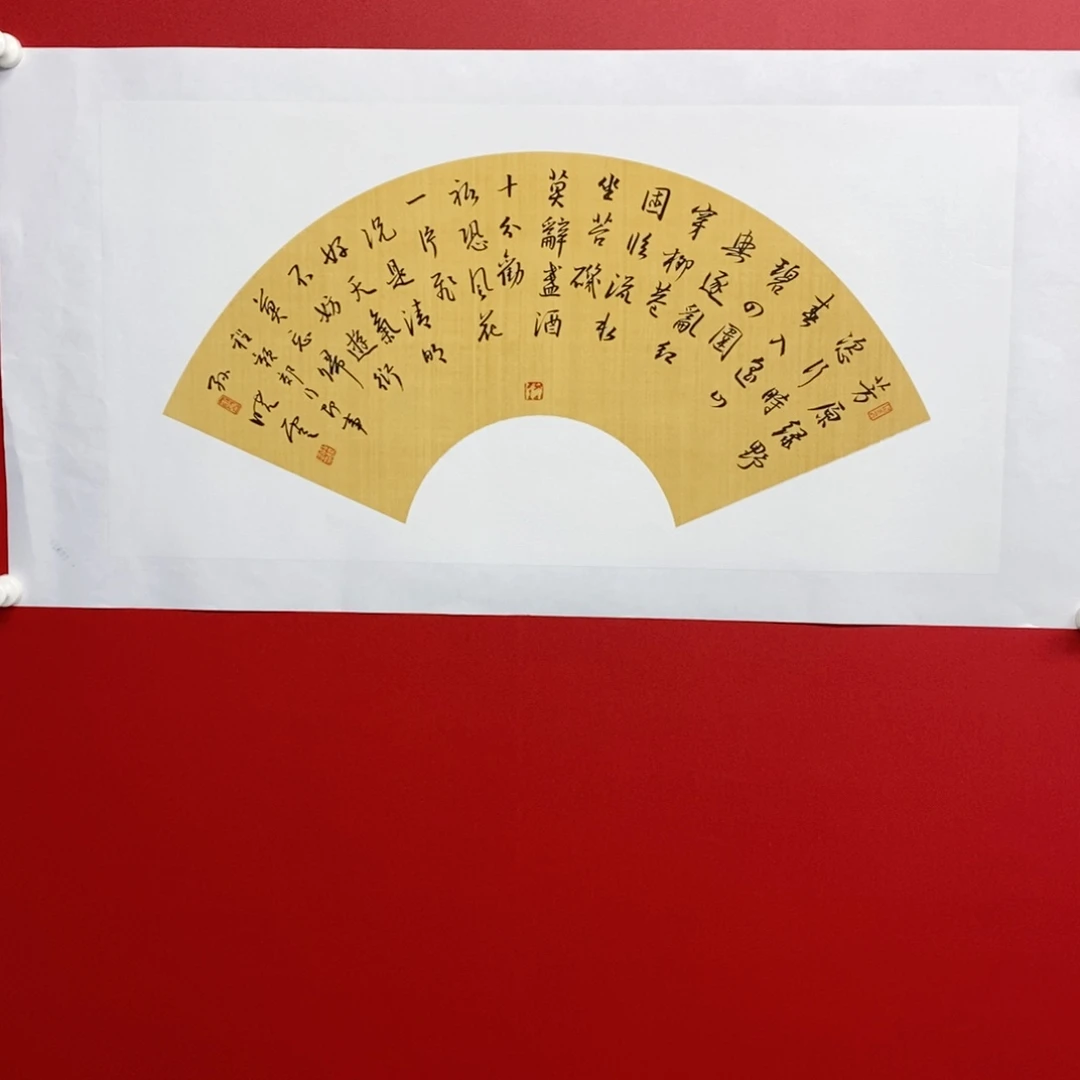 芳原綠野
恣行時
春入遙山
碧四圍
興逐亂紅
穿柳巷
困臨流水
坐苔磯
莫辭盞酒
十分勸
祗恐風花
一片飛
況是清明
好天氣
不妨遊衍
莫忘歸
程顥郊行即事
孫曉雲